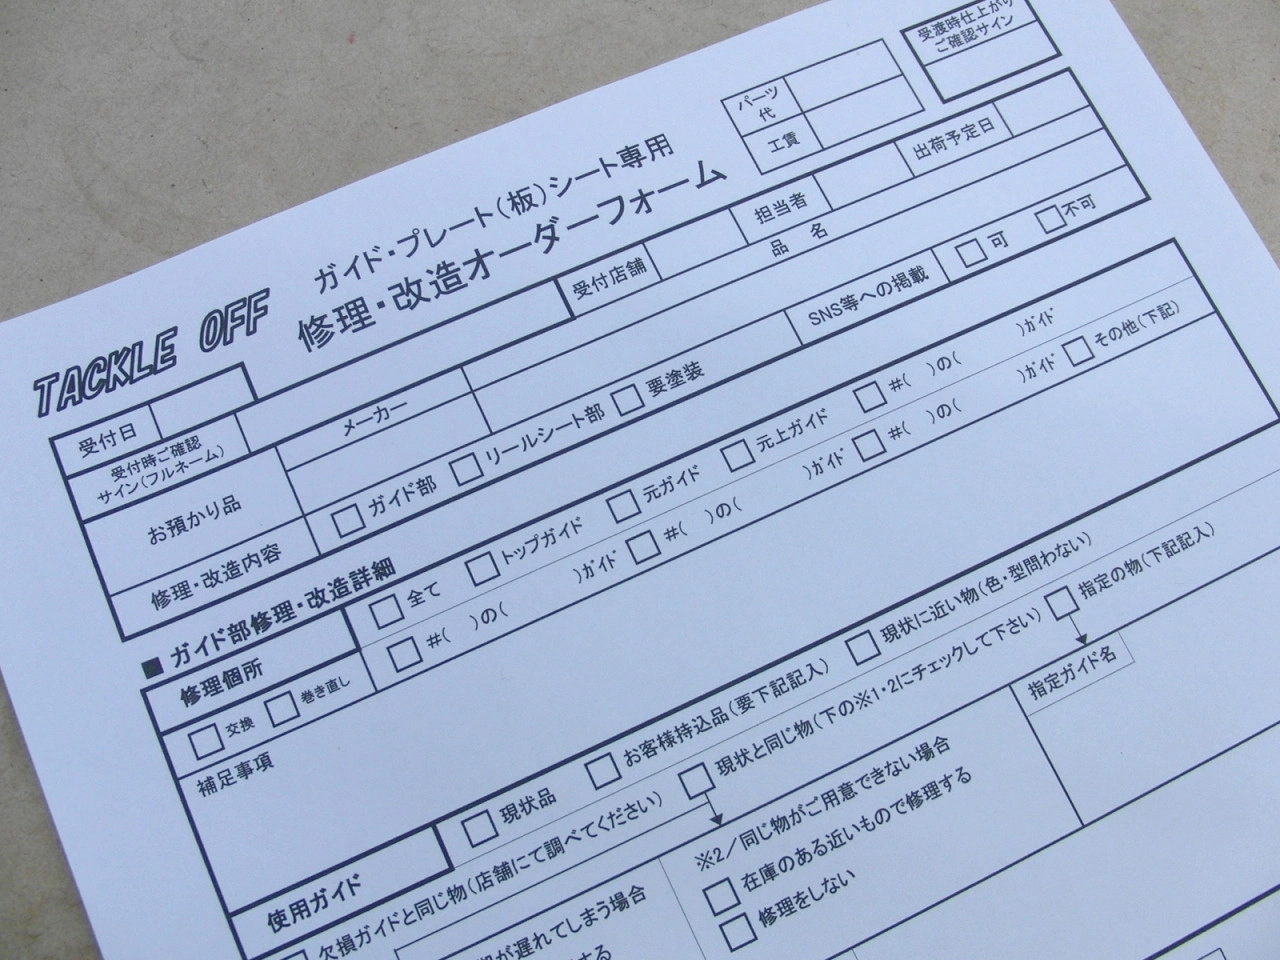 受渡時仕上がり
ご確認サイン
パーツ
代
工賃
TACKLE OFF
ガイド・プレート(板)シート専用
修理・改造オーダーフォーム
受付日
受付店舗
担当者
出荷予定日
受付時ご確認
サイン(フルネーム)
メーカー
品 名
お預かり品
修理・改造内容
□ ガイド部 □ リールシート部 □ 要塗装
SNS等への掲載
□ 可 □ 不可
■ ガイド部修理・改造詳細
修理個所
□ 全て □ トップガイド □ 元ガイド □ 元上ガイド □ #( )の( )ガイド
□ 交換 □ 巻き直し
□ #( )の( )ガイド □ #( )の( )ガイド □ #( )の( )ガイド □ その他(下記)
補足事項
使用ガイド
□ 現状品 □ お客様持込品(要下記記入) □ 現状に近い物(色・型問わない)
□ 欠損ガイドと同じ物(店舗にて調べてください) □ 現状と同じ物(下の※1・2にチェックして下さい) □ 指定の物(下記記入)
が遅れてしまう場合
する
※2/同じ物がご用意できない場合
□ 在庫のある近いもので修理する
□ 修理をしない
指定ガイド名